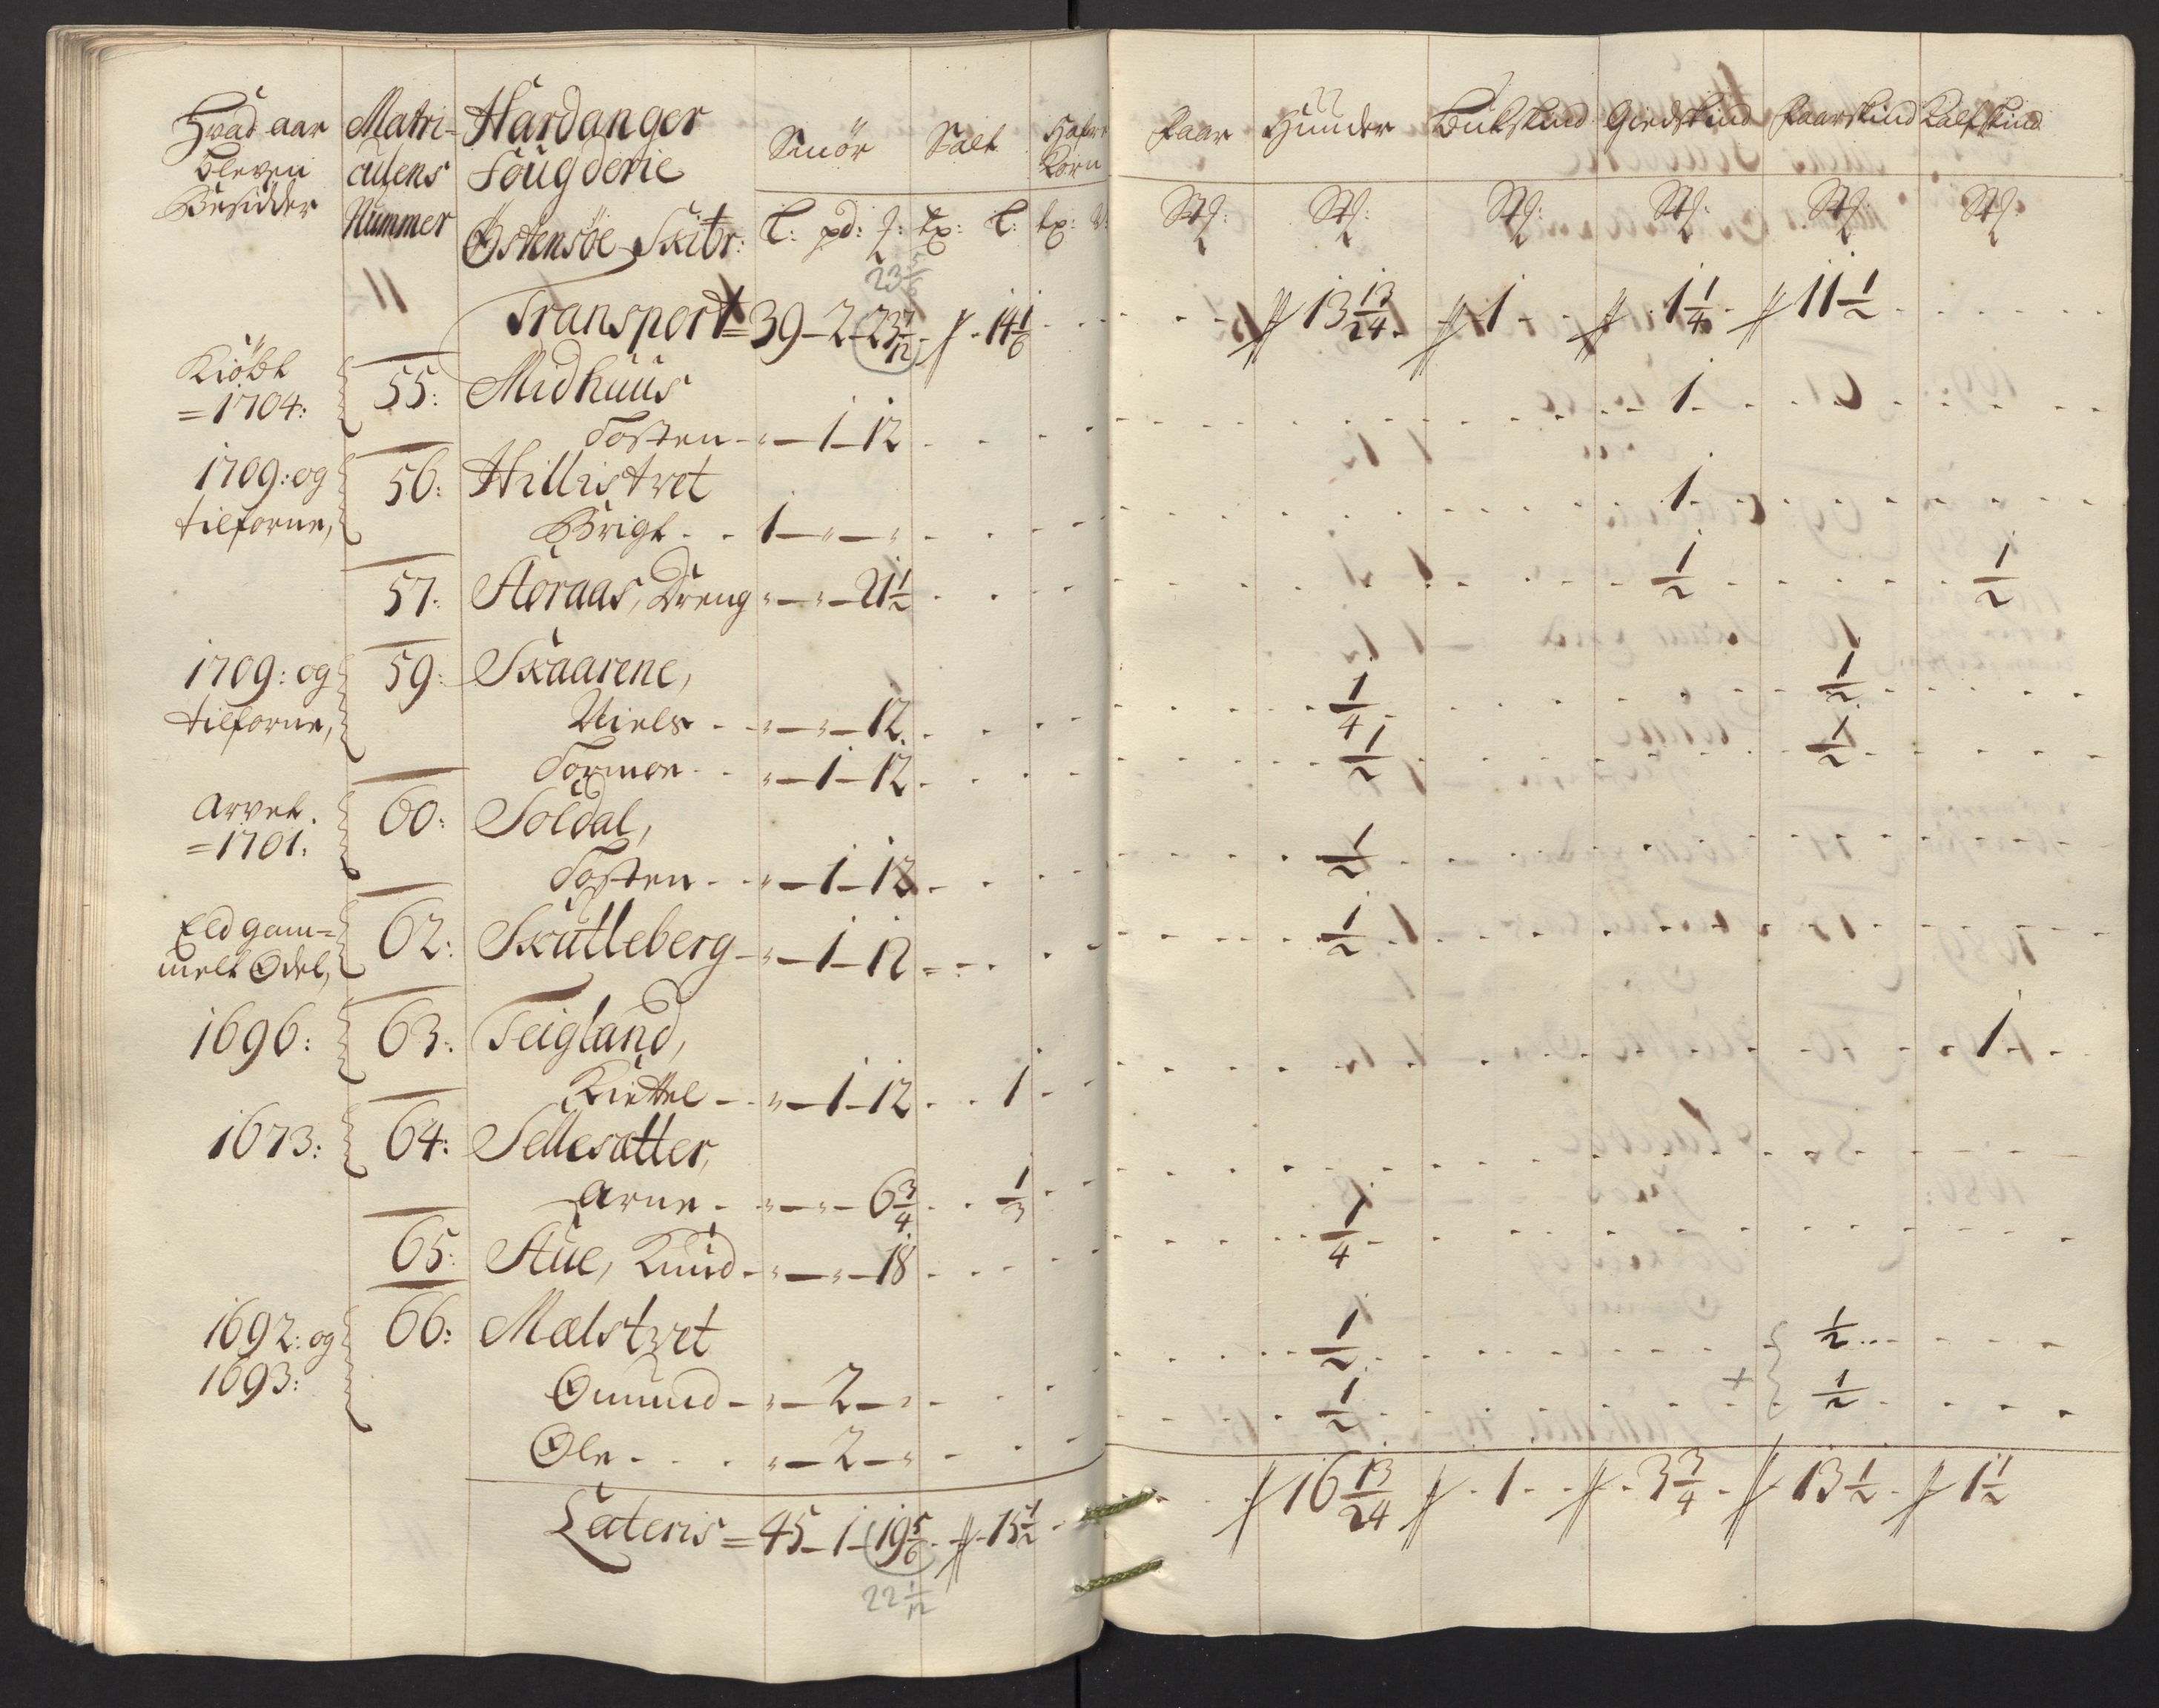 Hvad aar bleven Besidder | Matriculens Nummer | Hardanger Fougderie Østensøe Skibr: | Smör L: pd: | Salt tp: L: | Hafre Korn tp: | Faar St: | Huuder St: | Bukskind St: | Giedskind St: | Faarskind St: | Kalfskind St:
23 5/6
Transport = 39 - 2 - 23 7/12 - 14 1/6 | 13 13/24 | 1 | 1 1/4 | 11 1/2
Kiöbt =1704: | 55: | Midhuus
Tosten - " - 1 - 12 | 1
1709: og tilforne, | 56: | Hillistvet
Brigt - 1 - " - " | 1
57: | Aoraas, Dreng " - " - 21 1/2 | 1/2 | 1/2
1709: og tilforne, | 59: | Skaarene,
Niels - " - " - 12 | 1/4 | 1/2
Tormoe - " - 1 - 12 | 1/2 | 1/2
Arvet =1701: | 60: | Soldal,
Tosten - " - 1 - 12 | 1/2
Eldgammelt Odel, | 62: | Skutleberg - " - 1 - 12 | 1/2
1696: | 63: | Teigland,
Kiettel - " - 1 - 12 | 1 | 1
1673: | 64: | Sellesætter,
Arne - " - " - 6 3/4 | 1/3
65: | Aue, Knud - " - " - 18 | 1/4
1692: og 1693: | 66: | Mælstvet
Omund - " - 2 - " | 1/2 | 1/2
Ole - " - 2 - " | 1/2 | + 1/2
Lateris = 45 - 1 - 19 5/6 - 15 1/2 | 16 13/24 | 1 | 3 3/4 | 13 1/2 | 1 1/2
22 1/12